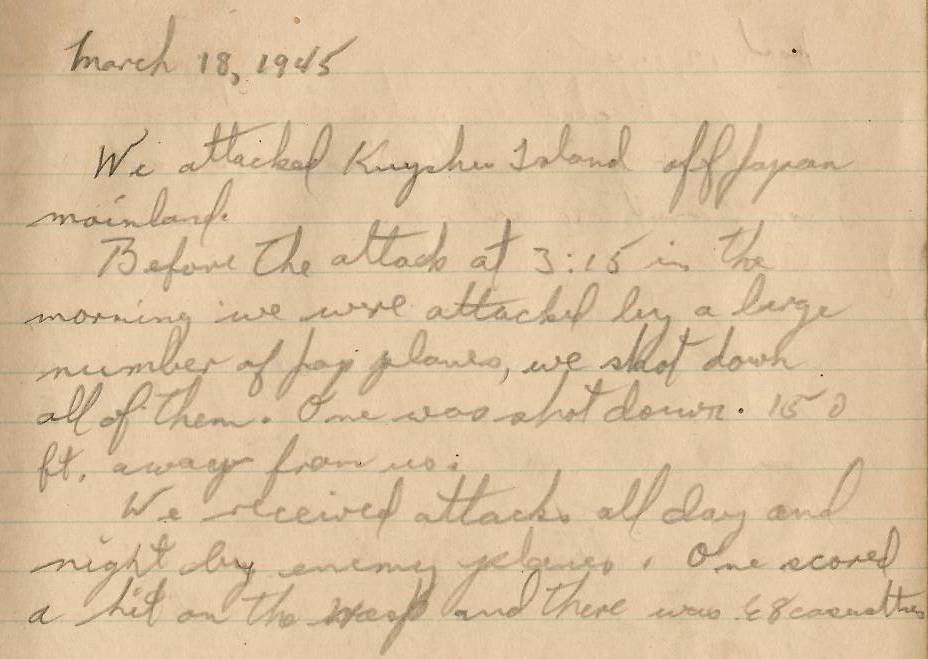 March 18, 1945
We attacked Kuyshu Island off Japan
mainland.
Before the attack at 3:15 in the
morning we were attacked by a large
number of Jap planes, we shot down
all of them. One was shot down. 150
ft. away from us.
We received attacks all day and
night by enemy planes. One scored
a hit on the Wasp and there was casualties